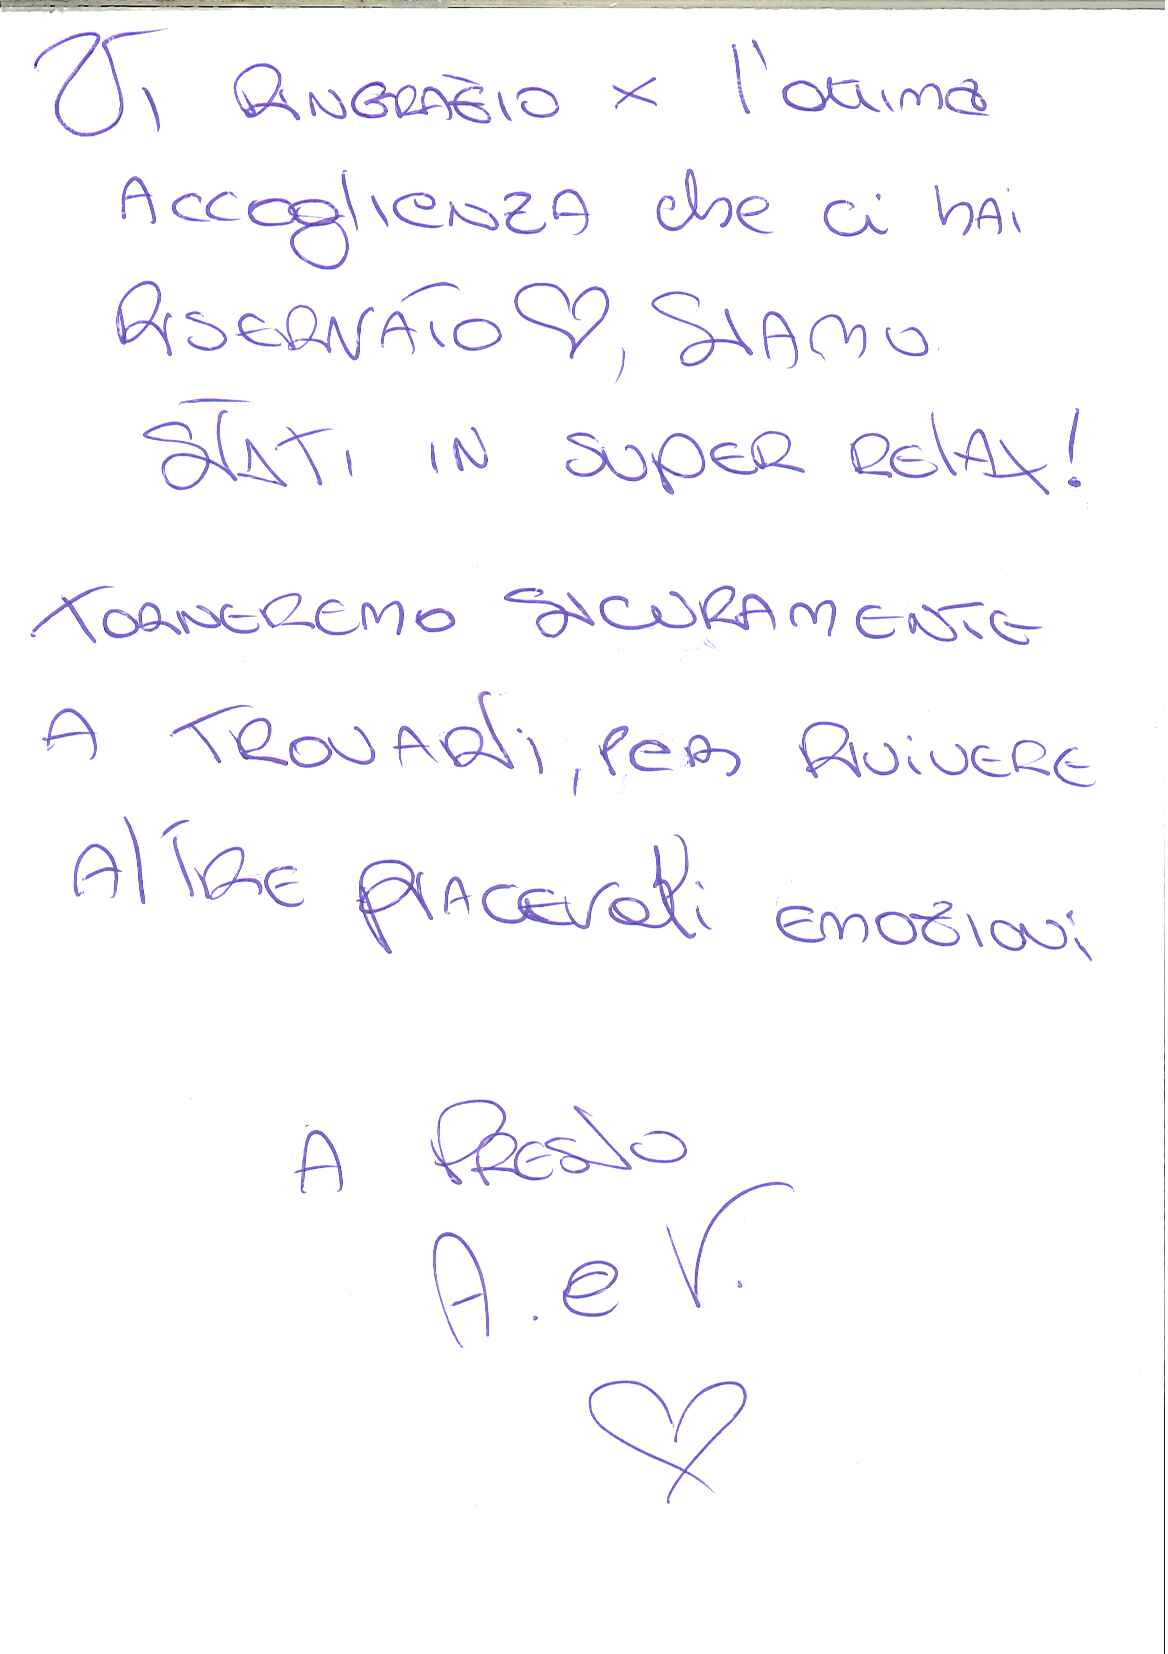 Vi RINGRAZIO x l'ottima
ACCOGLIENZA che ci hAI
RISERVATO♡, SIAMO
STATI IN SUPER RELAX!
TORNEREMO SICURAMENTE
A TROVARTi, PER RIVIVERE
AlTRE PIACEVOLi EMOZIONi
A PRESTO
A. e V.
♡